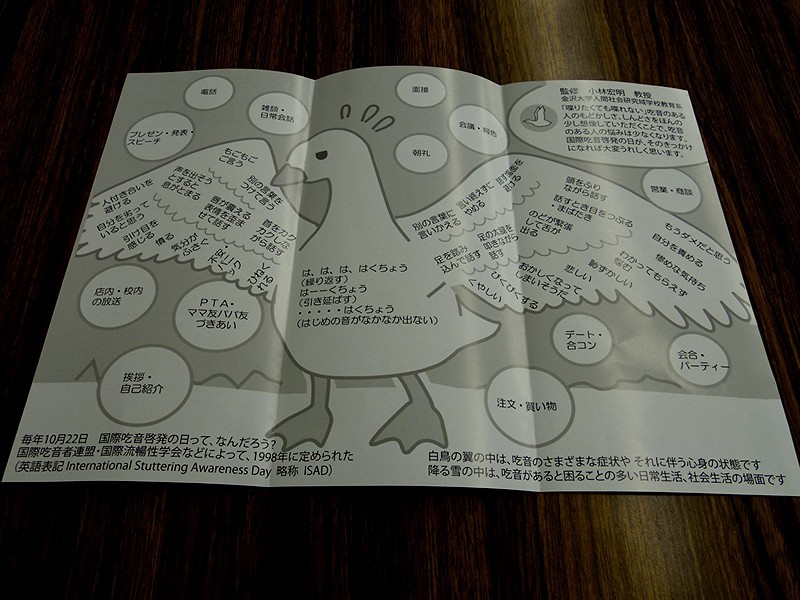 電話
雑談・
日常会話
プレゼン・発表・
スピーチ
面接
会議・報告
朝礼
監修　小林宏明　教授
金沢大学人間社会研究域学校教育系
「喋りたくても喋れない」吃音のある
人のもどかしさ、しんどさをほんの
少し想像していただくことで、吃音
のある人の悩みは少なくなります。
国際吃音啓発の日が、そのきっかけ
になれば大変うれしく思います。
営業・商談
人付き合いを
避ける
自分を劣って
いると思う
引け目を
感じる
憤る
気分が
ふさぐ
声を出そう
とすると
息がとまる
もごもご
ご言う
別の言葉を
つけて言う
唇が震える
表情を歪ま
せて話す
首をカク
カクしな
がら話す
別の言葉に
言いかえる
言い終えずに
やめる
足を踏み
込んで話す
足の太腿を
叩きながら
話す
頭をふり
ながら話す
話すとき目をつぶる
・まばたき
のどが緊張
して舌が
出る
おかしくなって
しまいそうだ
びくびくする
くやしい
悲しい
恥ずかしい
悩む
わかってもらえず
もうダメだと思う
自分を責める
惨めな気持ち
は、は、は、はくちょう
（繰り返す）
はーーくちょう
（引き延ばす）
・・・・・はくちょう
（はじめの音がなかなか出ない）
店内・校内
の放送
PTA・
ママ友パパ友
づきあい
挨拶・
自己紹介
注文・買い物
デート・
合コン
会合・
パーティー
毎年10月22日　国際吃音啓発の日って、なんだろう？
国際吃音者連盟・国際流暢性学会などによって、1998年に定められた
（英語表記 International Stuttering Awareness Day 略称 ISAD）
白鳥の翼の中は、吃音のさまざまな症状や それに伴う心身の状態です
降る雪の中は、吃音があると困ることの多い日常生活、社会生活の場面です